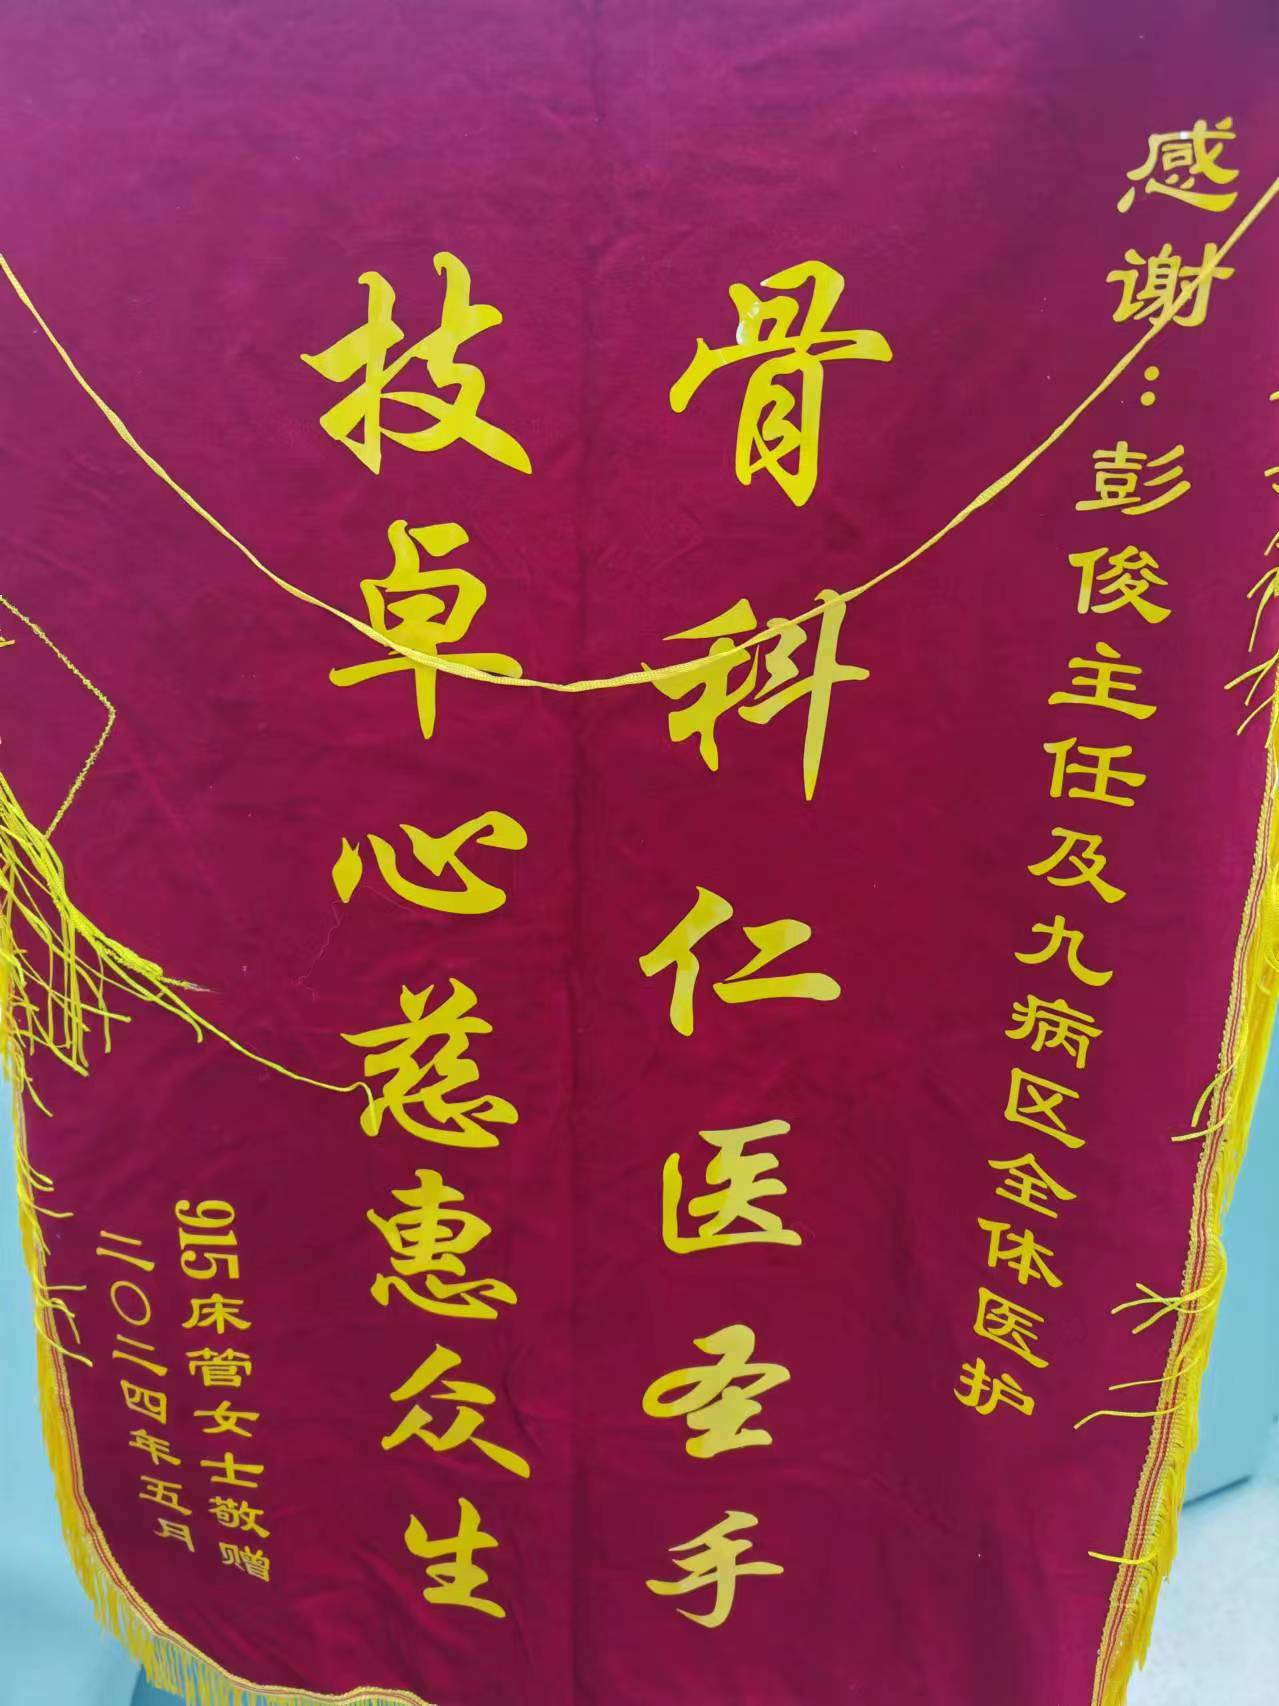 感谢：彭俊主任及九病区全体医护
骨科仁医圣手
技卓心慈惠众生
915床管女士敬赠
二〇二四年五月